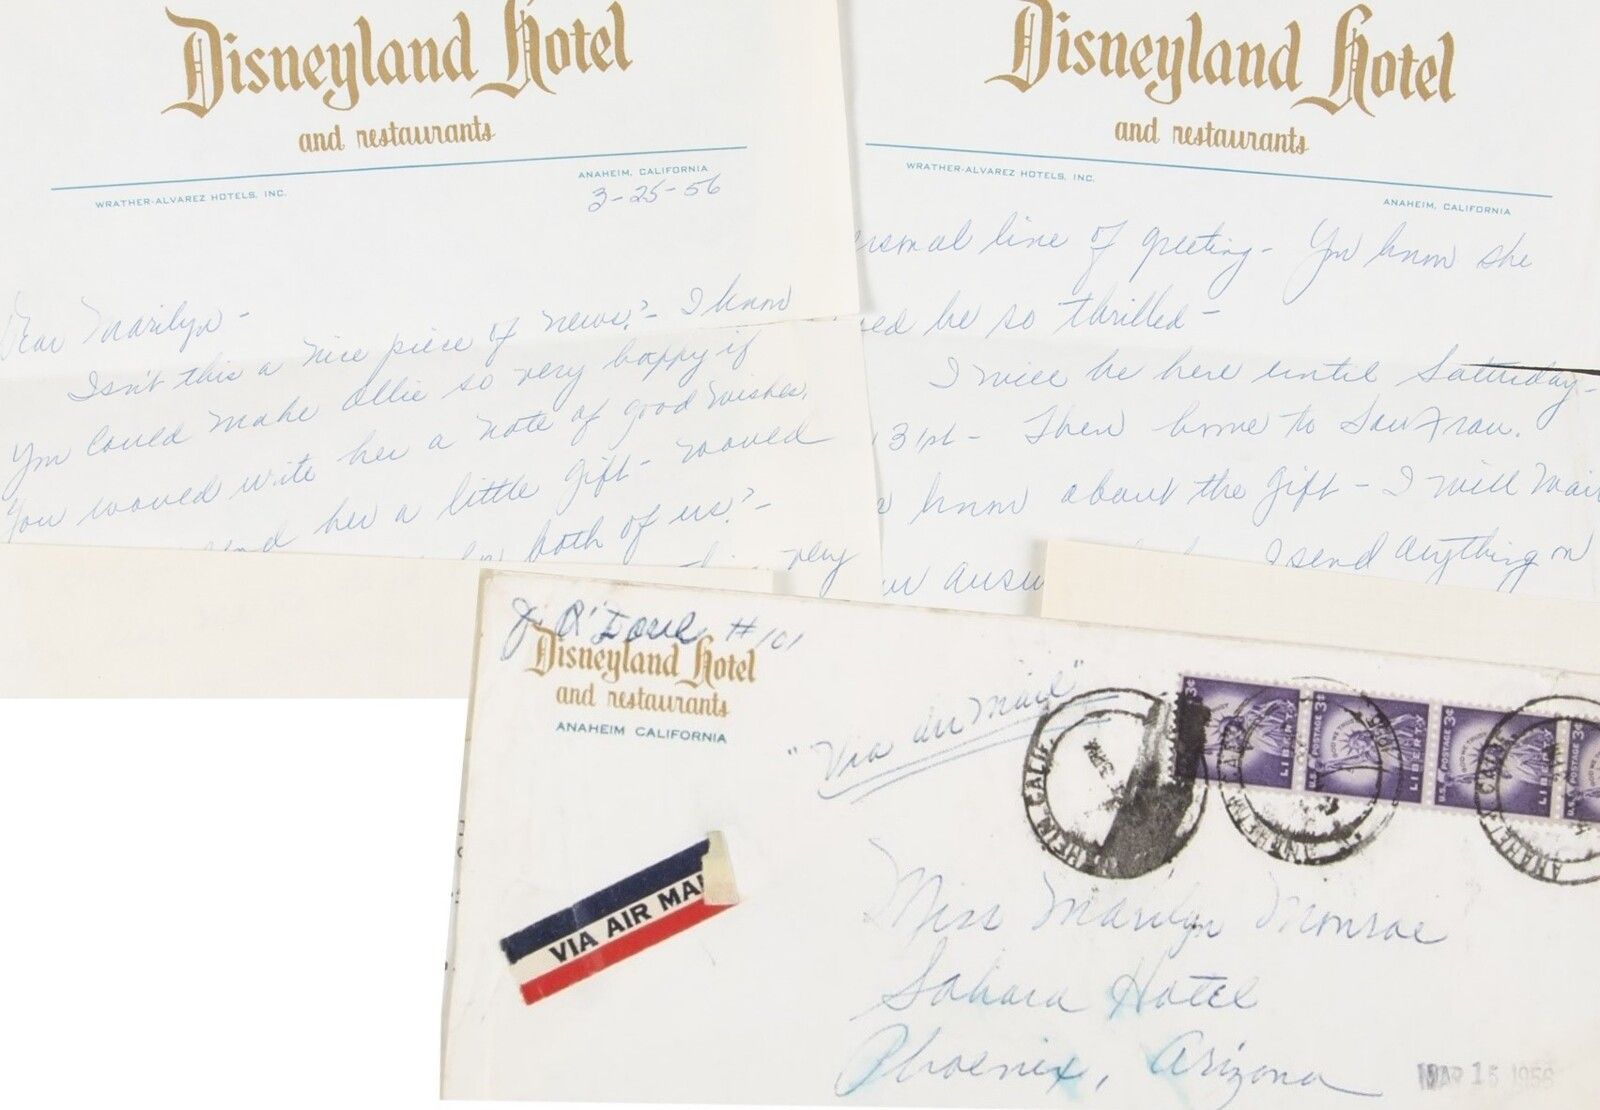 Disneyland Hotel
and restaurants
WRATHER-ALVAREZ HOTELS, INC.
ANAHEIM, CALIFORNIA
3-25-56
Dear Marilyn -
Isn't this a nice piece of news? - I know
you could make Ollie so very happy if
you would write her a note of good wishes.
her a little gift - would
both of us? -
very
Disneyland Hotel
and restaurants
WRATHER-ALVAREZ HOTELS, INC.
ANAHEIM, CALIFORNIA
line of greeting - You know she
be so thrilled -
I will be here until Saturday -
31st - Then home to San Fran.
know about the gift - I will
I send anything on
J. O'Doul #101
Disneyland Hotel
and restaurants
ANAHEIM CALIFORNIA
"Via air Mail"
VIA AIR MAI
ANAHEIM, CALIF.
3 PM
U.S. POSTAGE 3¢
LIBERTY
Miss Marilyn Monroe
Sahara Hotel
Phoenix, Arizona
MAR 1 1956